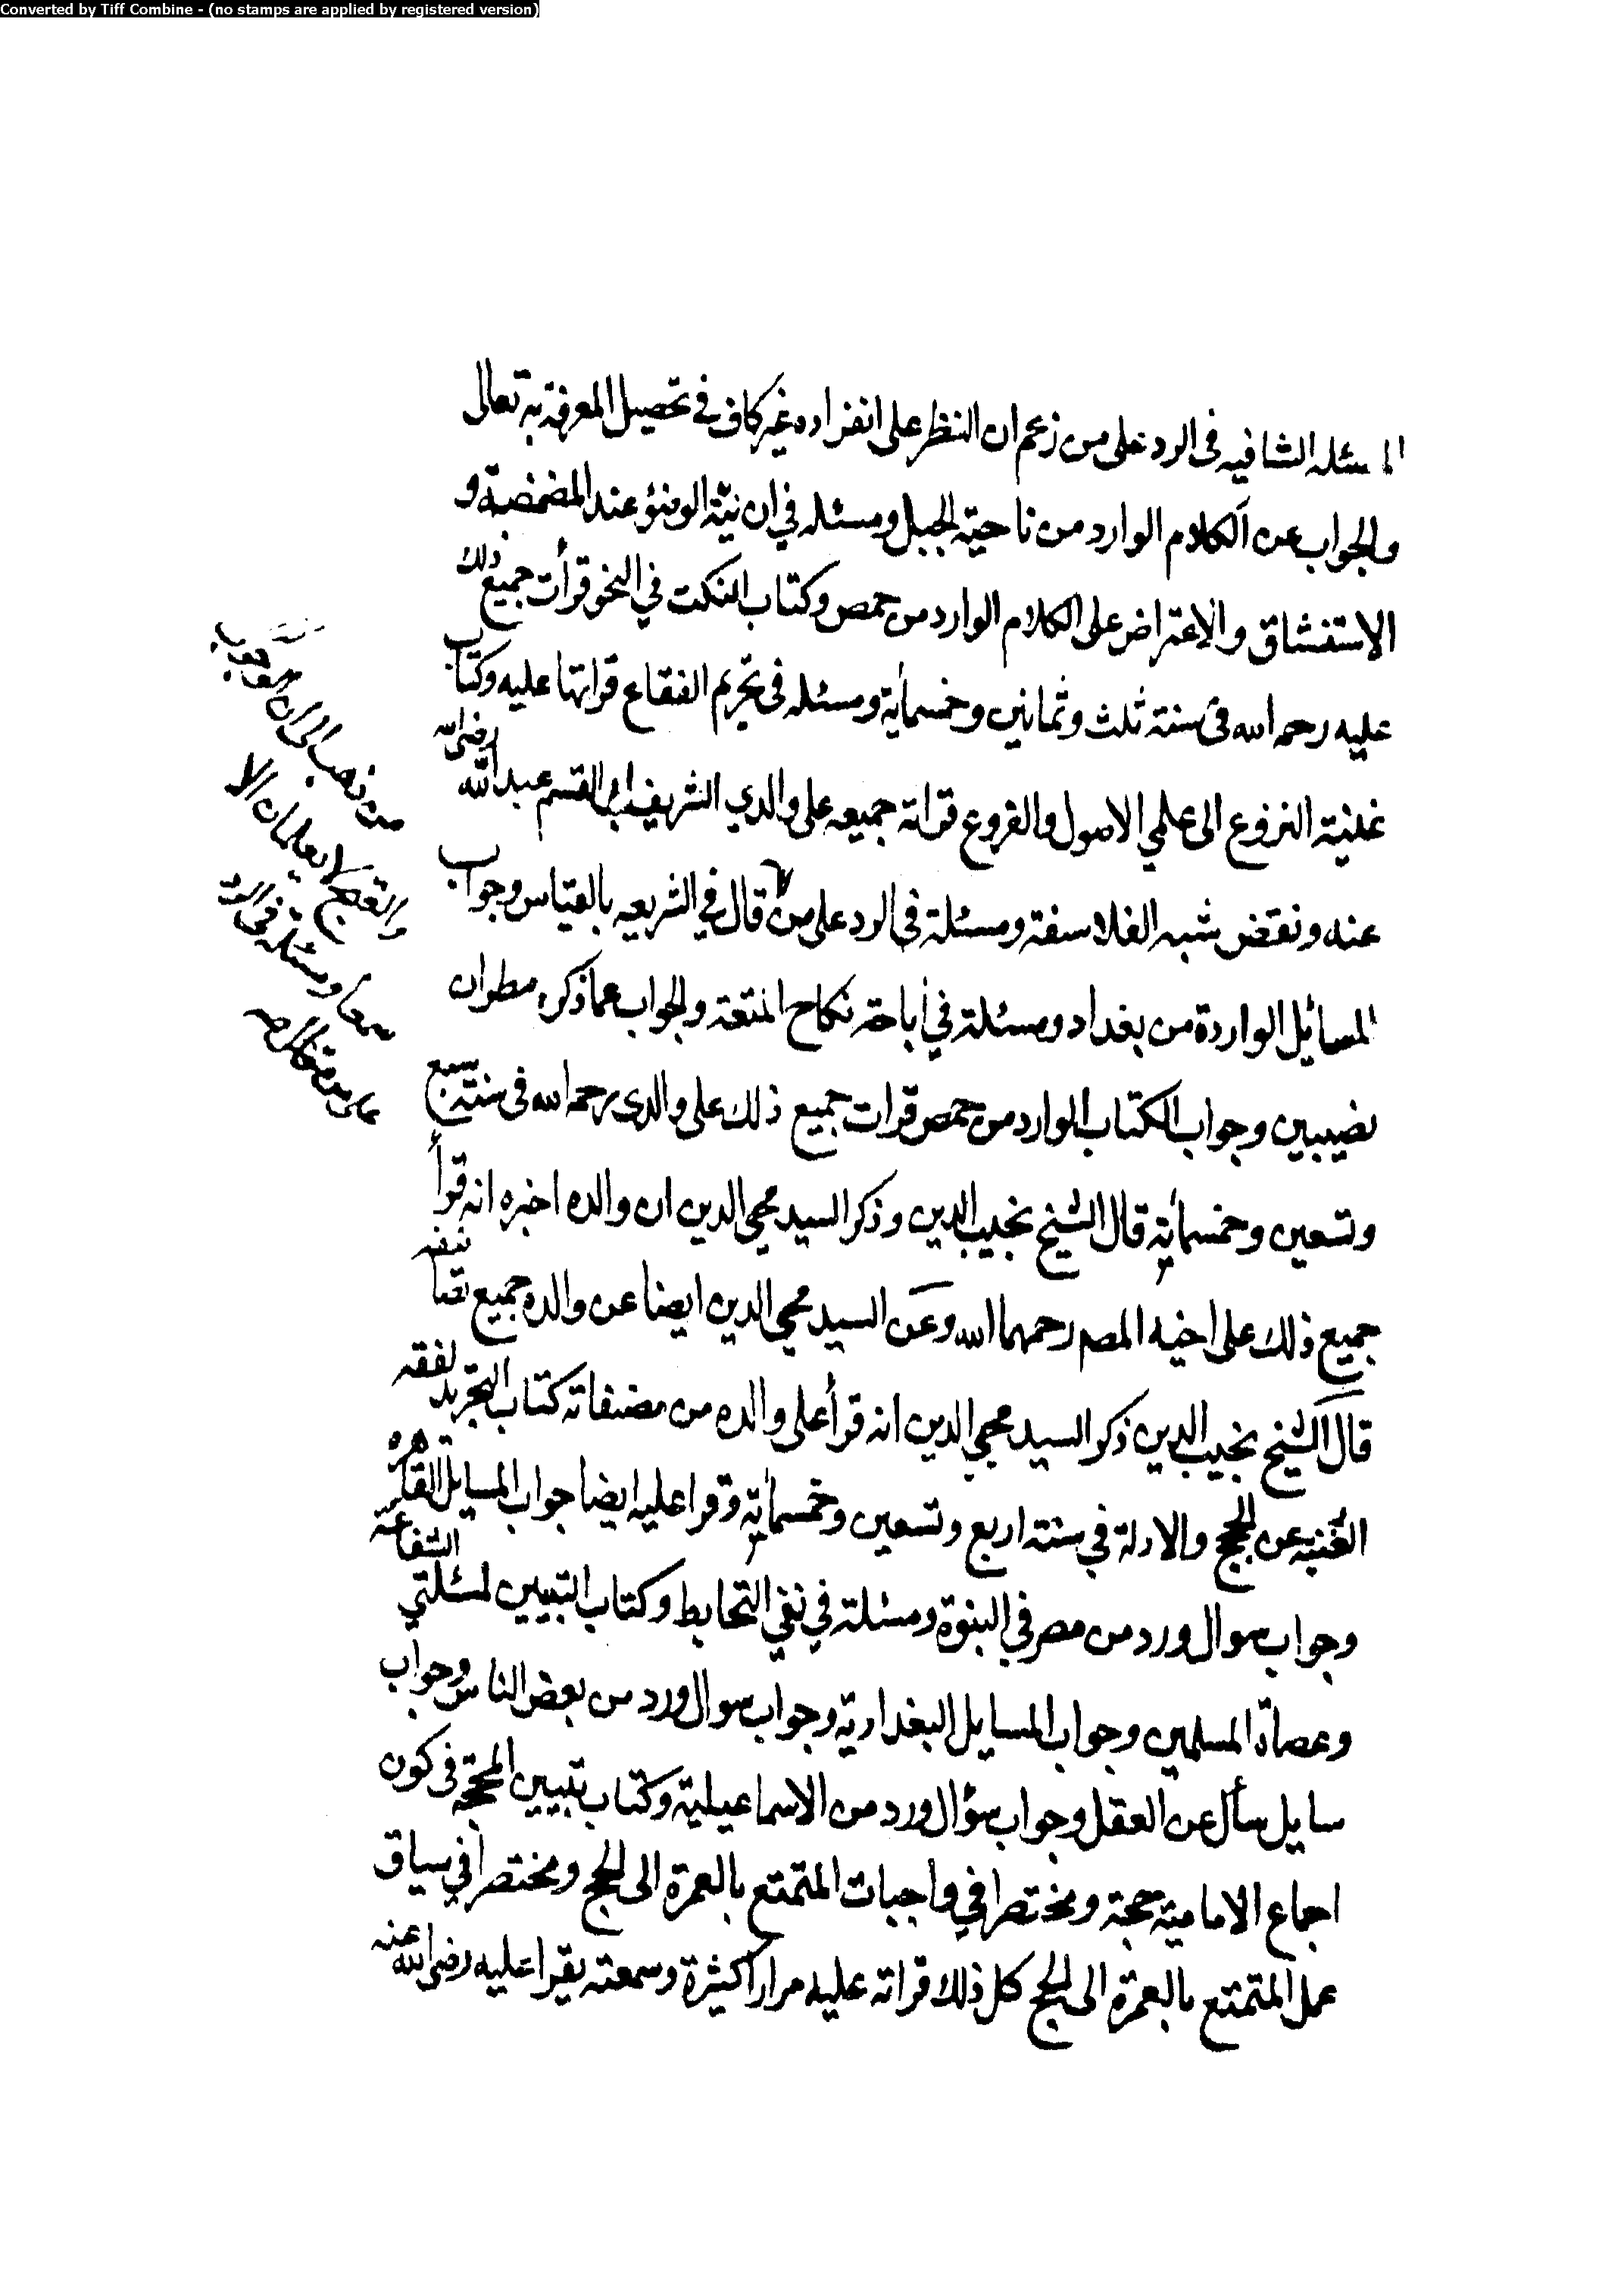 Converted by Tiff Combine - (no stamps are applied by registered version)
المسئله الشافيه فى الرد على من زعم ان النظر على انفراده غير كاف في تحصيل المعرفة به تعالى
والجواب عن الكلام الوارد من ناحية الجبل ومسئله في ان نيّة الوضؤ عند المضمضة و
الاستنشاق والاعتراض على الكلام الوارد من حمص وكتاب النكت في النحو قرأت جميع ذلك
عليه رحمه الله فى سنة ثلث وثمانين وخمسمأية ومسئله فى تحريم الفقاع قراتها عليه وكتاب
غنية النزوع الى علمي الاصول والفروع قراته جميعه على والدي الشريف ابى القسم عبد الله رضى الله
عنه ونقض شبه الفلاسفة ومسئلة فى الرد على من قال في الشريعه بالقياس وجواب
المسائل الواردة من بغداد ومسئلة في أباحة نكاح المتعة والجواب عما ذكره مطران
نصيبين وجواب الكتاب الوارد من حمص قرات جميع ذلك على والدى رحمه الله فى سنة سبع
وتسعين وخمسمأية قال الشيخ نجيب الدين وذكر السيد محيى الدين ان والده اخبره انه قرأ
جميع ذلك على اخيه المصم رحمهما الله وعن السيد محيى الدين ايضا عن والده جميع تصانيفه
قال الشيخ نجيب الدين ذكر السيد محيى الدين انه قرأ على والده من مصنفاته كتاب التجريد لفقه
الغنيه عن الحجج والادلة في سنة اربع وتسعين وخمسمأية وقرا عليه ايضا جواب المسايل القاهره
وجواب سوال ورد من مصر في النبوة ومسئلة في نفي التحابط وكتاب التبيين لمسئلتي الشفاعة
وعصاة المسلمين وجواب المسايل البغدادية وجواب سوال ورد من بعض الناس وجواب
سايل سأل عن العقل وجواب سؤال ورد من الاسماعيلية وكتاب تبيين المحجة فى كون
اجماع الامامية حجة ومختصرا في واجبات المتمتع بالعمرة الى الحج ومختصرا في سياق
عمل المتمتع بالعمرة الى الحج كل ذلك قراته عليه مرارا كثيرة وسمعته يقرا عليه رضى الله عنه
من ذهب الى ان
والقبح لا يعلمان الا
ومسئله في الرد